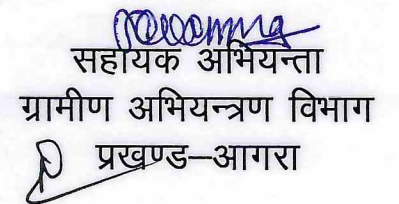 सहायक अभियन्ता
ग्रामीण अभियन्त्रण विभाग
प्रखण्ड–आगरा